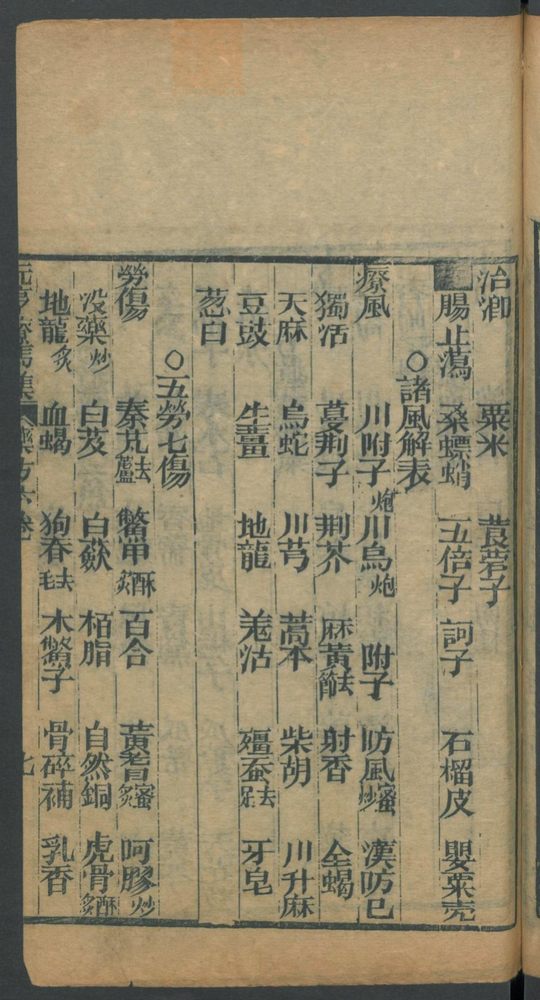 治瀄 粟米 莨菪子
腸止瀉 桑螵蛸 五倍子 訶子 石榴皮 嬰粟壳
○諸風解表
療風 川附子炮 川烏炮 附子 防風蜜炒 漢防已
獨活 蔓荆子 荆芥 麻黃去節 射香 全蝎
天麻 烏蛇 川芎 蒿本 柴胡 川升麻
豆豉 生薑 地龍 羗活 殭蚕去足 牙皂
葱白
○五勞七傷
勞傷 秦艽去蘆 鱉甲酥炙 百合 黃耆蜜炙 呵膠炒
没藥炒 白芨 白蘞 栢脂 自然銅 虎骨酥炙
地龍炙 血蝎 狗脊去毛 木鱉子 骨碎補 乳香
元亨療馬集 藥方六卷 七